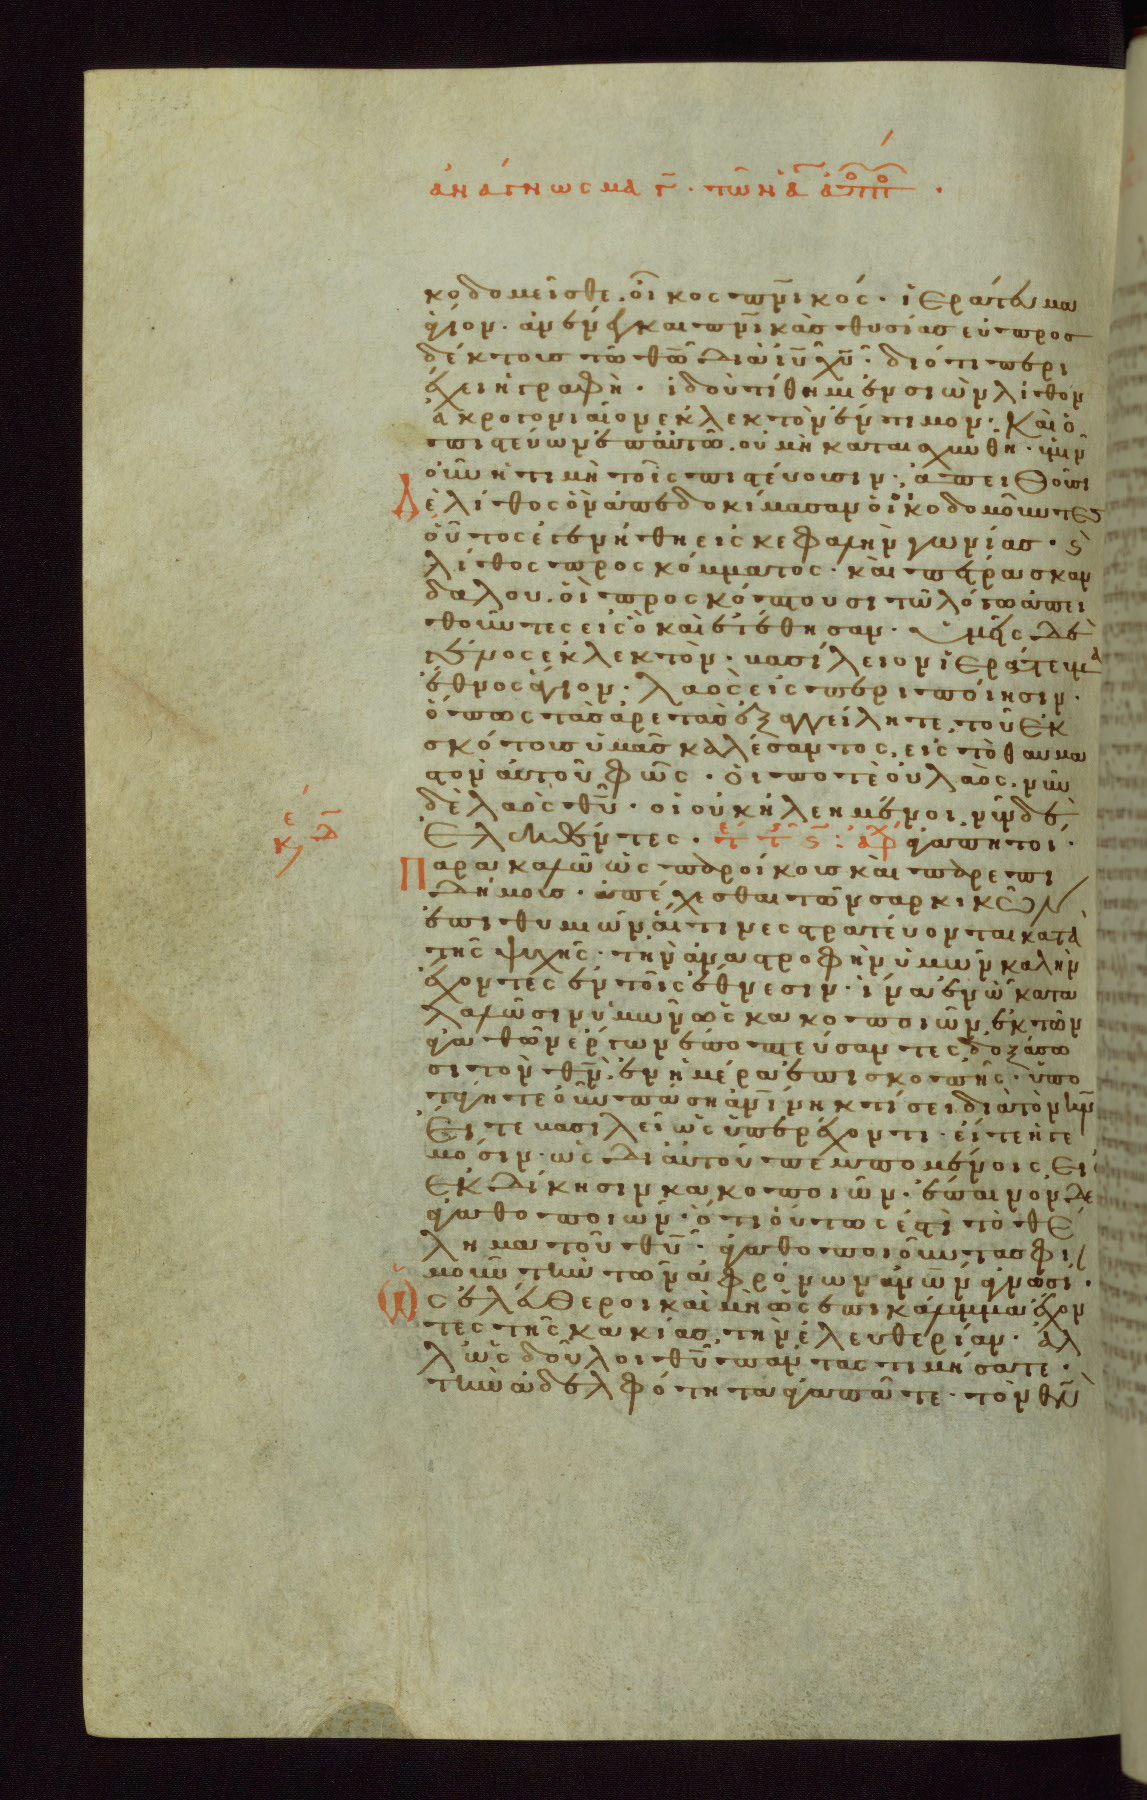 ἀνάγνωσμα γ̅. τῶν ἁ ἀπο
κοδομεῖσθε. οἶκος πν̅ικός. ἱεράτευμα
ἅγιον. ἀνενέγκαι πν̅ικὰς θυσίας εὐπροσ
δέκτους τῶ θῶ̅ διὰ ἰυ̅ χυ̅. διότι περι
έχει ἡ γραφή. ἰδοὺ τίθημι ἐν σιὼν λίθον
ἀκρογονιαῖον ἐκλεκτὸν ἔντιμον. καὶ ὁ
πιστεύων ἐπ' αὐτῶ. οὐ μὴ καταισχυνθῆ. ὑμῖν
οὖν ἡ τιμὴ τοῖς πιστεύουσιν. ἀπειθοῦσι
δὲ λίθος ὃν ἀπεδοκίμασαν οἱ οἰκοδομοῦντες
οὗτος ἐγενήθη εἰς κεφαλὴν γωνίας. ϗ
λίθος προσκόμματος. καὶ πέτρα σκαν
δάλου. οἳ προσκόπτουσι τῶ λόγω ἀπει
θοῦντες εἰς ὃ καὶ ἐτέθησαν. ὑμεῖς δὲ
γένος ἐκλεκτόν. βασίλειον ἱεράτευμα
ἔθνος ἅγιον. λαὸς εἰς περιποίησιν.
ὅπως τὰς ἀρετὰς ἐξαγγείλητε τοῦ ἐκ
σκότους ὑμᾶς καλέσαντος, εἰς τὸ θαυμα
στὸν αὐτοῦ φῶς. οἵ ποτὲ οὐ λαός. νῦν
δὲ λαὸς θυ̅. οἱ οὐκ ἠλεημένοι. νῦν δὲ
ἐλεηθέντες. ἀρχ ἀγαπητοί.
Παρακαλῶ ὡς παροίκους καὶ παρεπι
δήμους. ἀπέχεσθαι τῶν σαρκικῶν
ἐπιθυμιῶν, αἵτινες στρατεύονται κατὰ
τῆς ψυχῆς. τὴν ἀναστροφὴν ὑμῶν καλὴν
ἔχοντες ἐν τοῖς ἔθνεσιν. ἵνα ἐν ὧ κατα
λαλῶσιν ὑμῶν ὡς κακοποιῶν, ἐκ τῶν
ἀγαθῶν ἔργων ἐποπτεύσαντες, δοξάσω
σι τὸν θν̅. ἐν ἡμέρα ἐπισκοπῆς. ὑπο
τάγητε οὖν πάση ἀνίνη κτίσει διὰ τὸν κν̅
Εἴτε βασιλεῖ ὡς ὑπερέχοντι. εἴτε ἡγε
μόσιν. ὡς δι' αὐτοῦ πεμπομένοις εἰς
ἐκδίκησιν κακοποιῶν. ἔπαινον δὲ
ἀγαθοποιῶν. ὅτι οὕτως ἐστὶ τὸ θέ
λημα τοῦ θυ̅. ἀγαθοποιοῦντας φι
μοῦν τὴν τῶν ἀφρόνων ἀνῶν ἀγνωσί.
Ὡς ἐλεύθεροι καὶ μὴ ὡς ἐπικάλυμμα ἔχον
τες τῆς κακίας, τὴν ἐλευθερίαν. ἀλ
λ' ὡς δοῦλοι θυ̅ πάντας τιμήσατε.
τὴν ἀδελφότητα ἀγαπᾶτε. τὸν θν̅